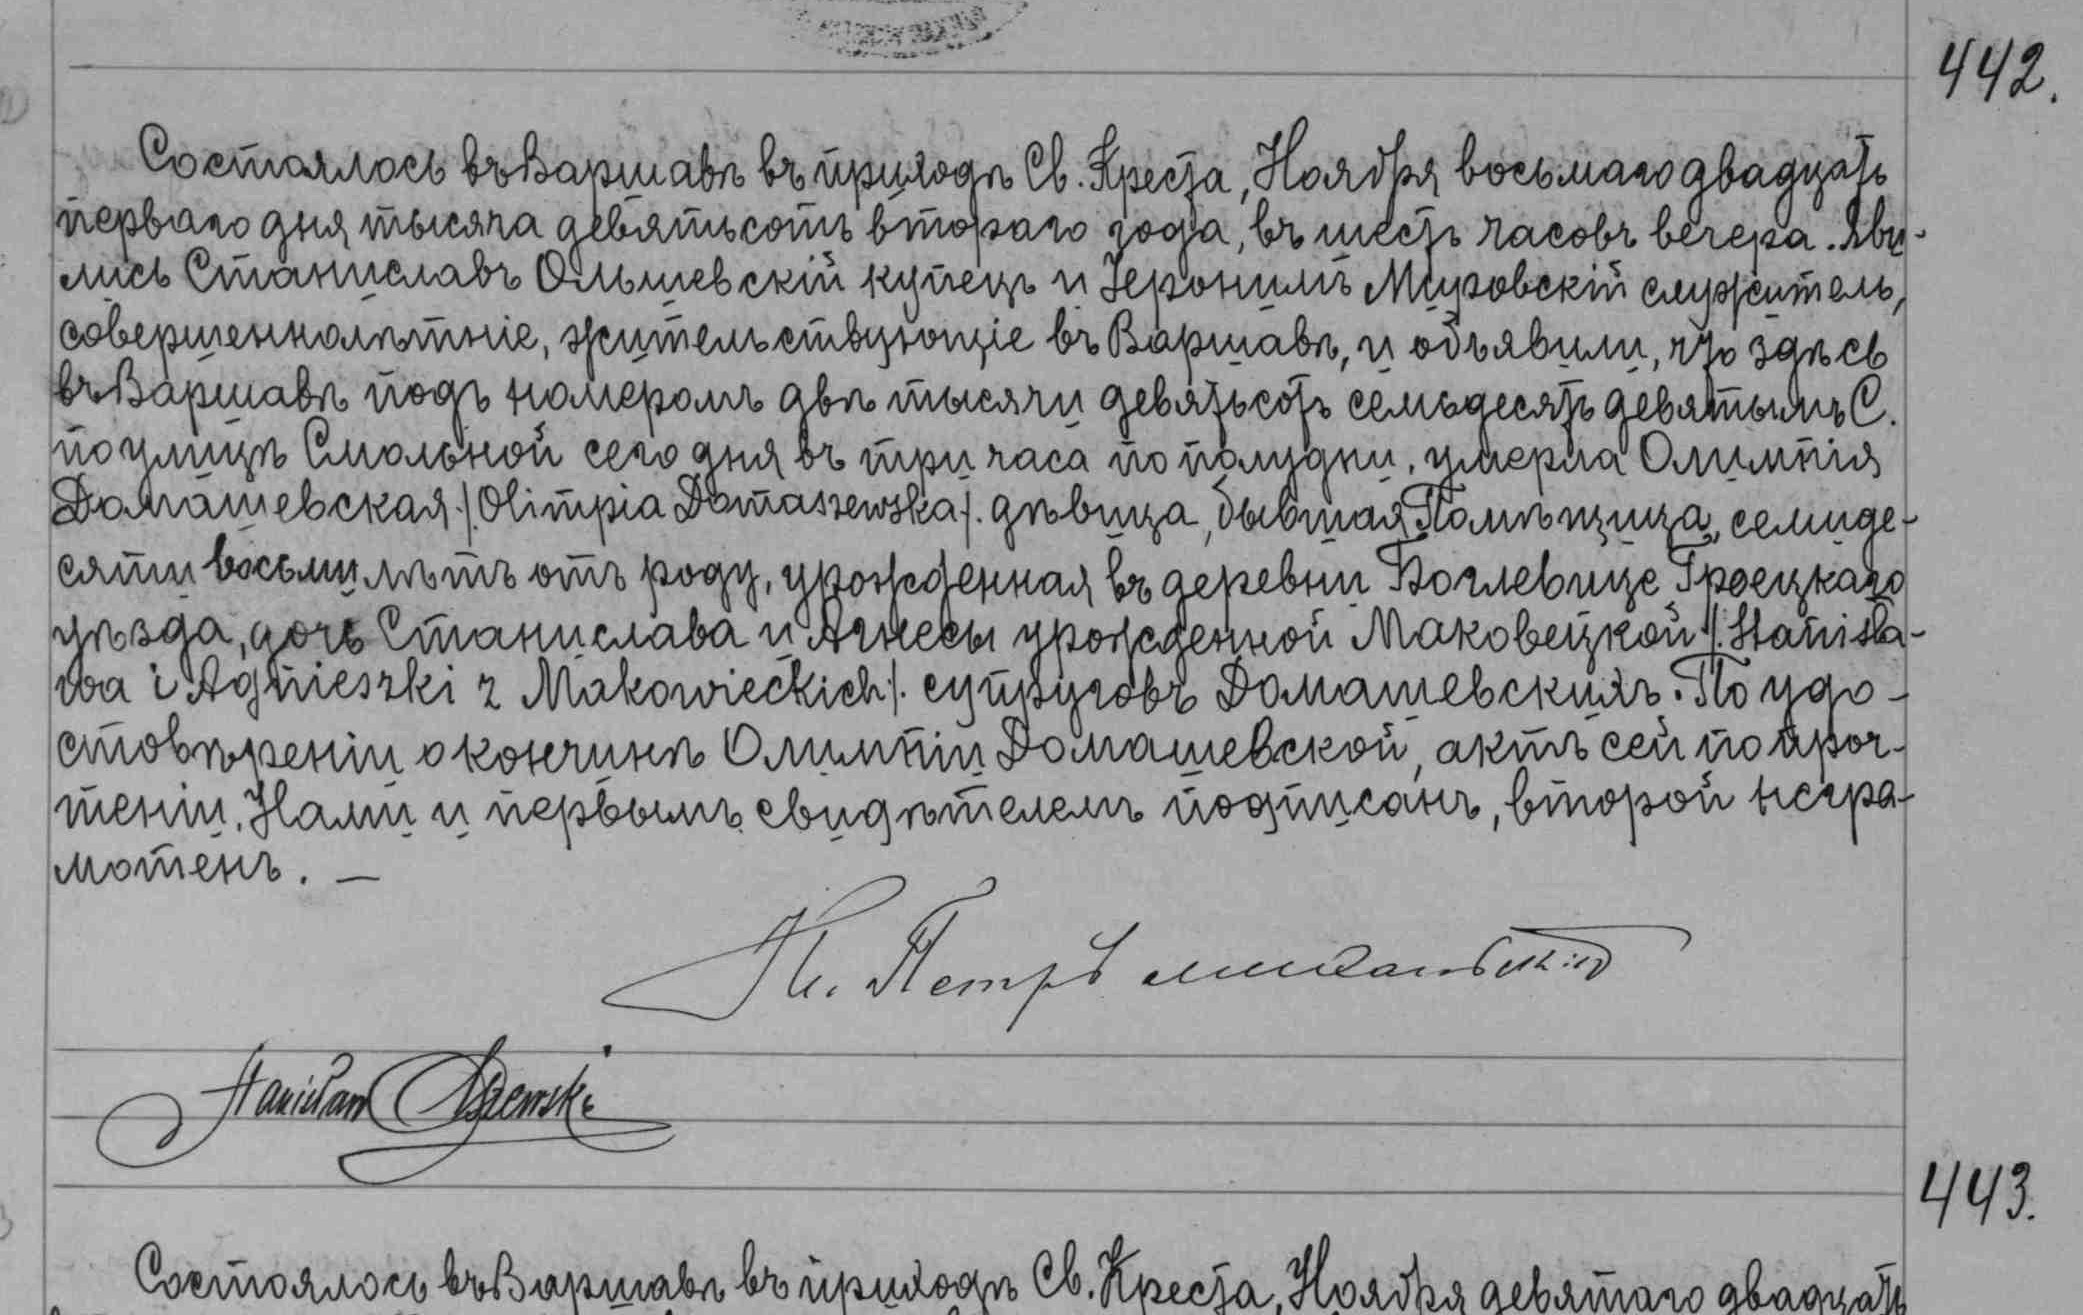 442.
Состоялось въ Варшавѣ въ приходѣ Св. Креста, Ноября восьмаго двадцать
перваго дня тысяча девятьсотъ втораго года, въ шесть часовъ вечера. Яви-
лись Станиславъ Ольшевскій купецъ и Іеронимъ Муровскій служитель,
совершеннолѣтніе, жительствующіе въ Варшавѣ, и объявили, что здѣсь
въ Варшавѣ подъ номеромъ двѣ тысячи девятьсотъ семьдесятъ девятымъ С.
по улицѣ Смольной сего дня въ три часа по полудни, умерла Олимпія
Домашевская /. Olimpia Domaszewska /. дѣвица, бывшая Помѣщица, семиде-
сяти восьми лѣтъ отъ роду, урожденная въ деревни Боглевице Гроецкаго
уѣзда, дочь Станислава и Агнесы урожденной Маковецкой /. Stanisła-
wa i Agnieszki z Makowieckich /. супруговъ Домашевскихъ. По удо-
стовѣреніи о кончинѣ Олимпіи Домашевской, актъ сей по проч-
теніи, Нами и первымъ свидѣтелемъ подписанъ, второй негра-
мотенъ. —
Кс. Петръ
Stanisław Olszewski
443.
Состоялось въ Варшавѣ въ приходѣ Св. Креста, Ноября девятаго двадцать